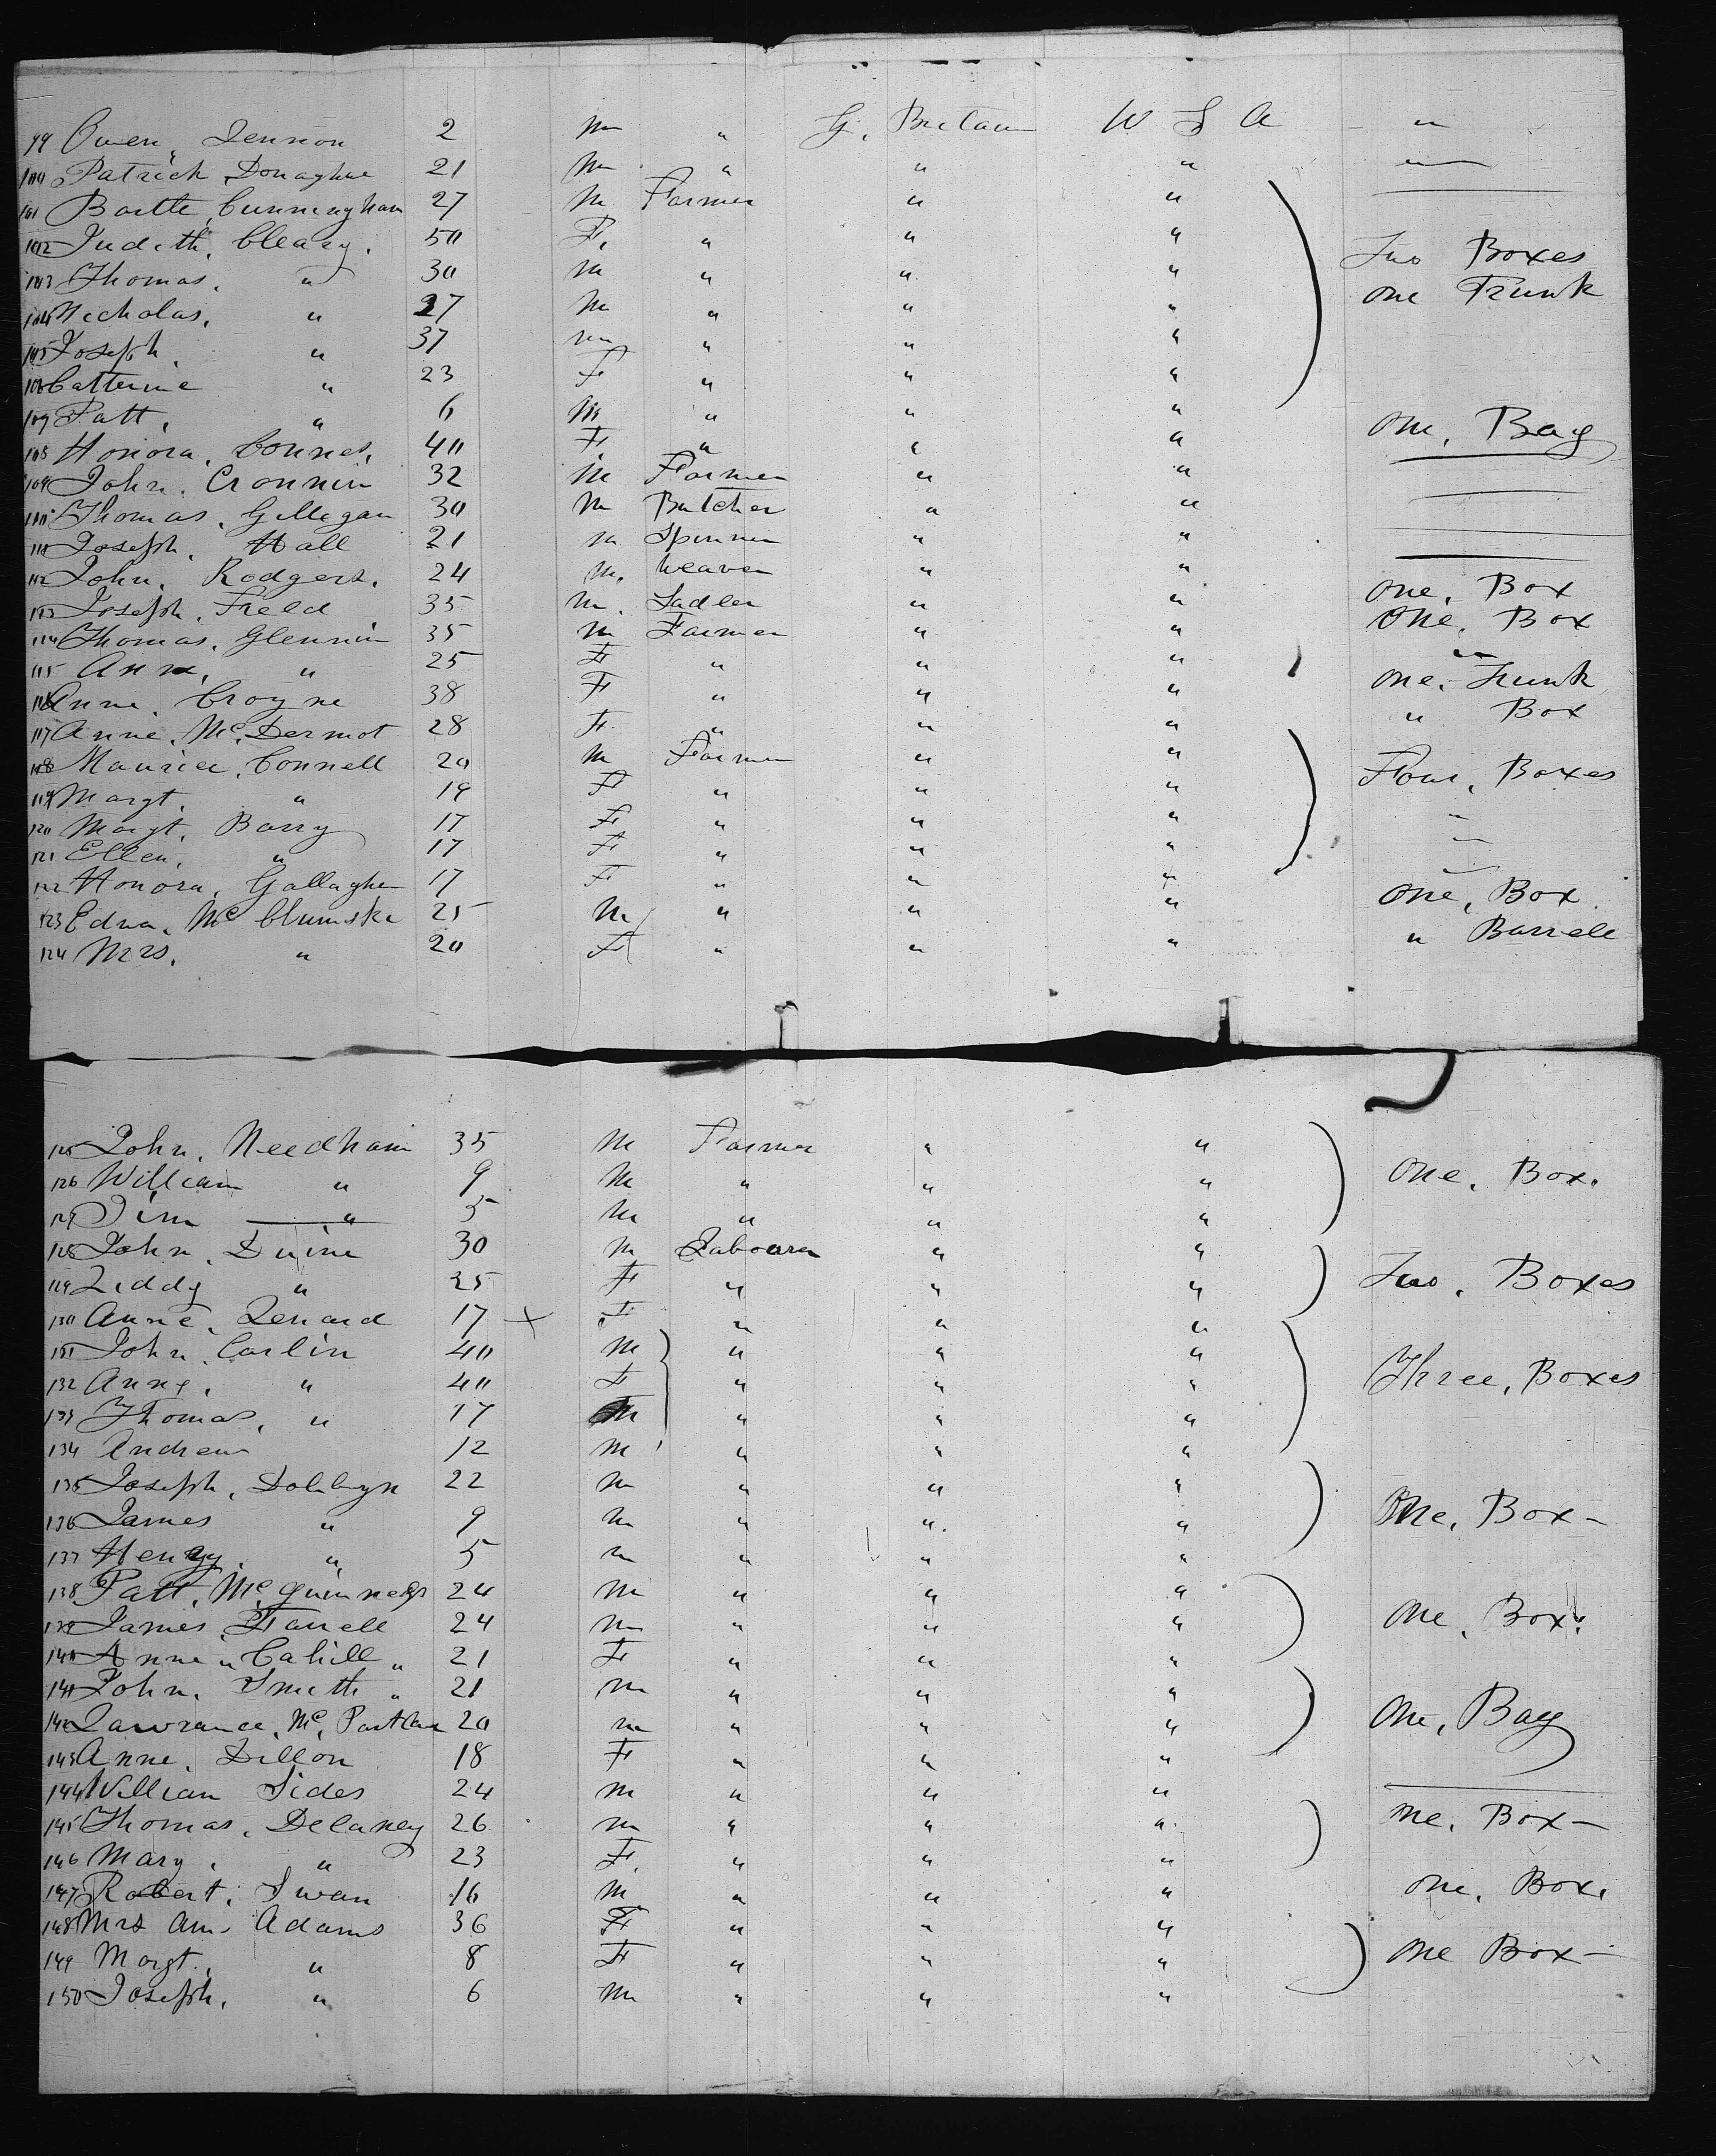 99 Owen, Lennon 2 M " G. Britain U S A "
100 Patrick Donaghue 21 M " " " "
101 Bartle Cunningham 27 M Farmer " "
102 Judith, Cleary. 50 F. " " "
103 Thomas, " 30 M " " " Two Boxes
104 Nicholas, " 27 M " " " one Trunk
105 Joseph, " 37 M " " "
106 Catterine " 23 F " " "
107 Patt, " 6 M " " "
108 Honora, Connes, 40 F " " " One, Bag
109 John, Cronnin 32 M Farmer " "
110 Thomas, Gillegan 30 M Butcher " "
111 Joseph, Hall 21 M Spinner " "
112 John, Rodgers, 24 M. Weaver " " One, Box
113 Joseph, Field 35 M. Sadler " " One, Box
114 Thomas, Glennin 35 M Farmer " " "
115 Ann, " 25 F " " " One, Trunk
116 Anne, Croyne 38 F " " " " Box
117 Anne, Mc. Dermot 28 F " " "
118 Maurice, Connell 20 M Farmer " " Four, Boxes
119 Margt. " 19 F " " "
120 Margt, Barry 17 F " " " "
121 Ellen, " 17 F " " " "
122 Honora, Gallagher 17 F " " " One, Box
123 Edwa, Mc 25 M " " "
124 Mrs. " 20 F " " " " Barrell
125 John, Needham 35 M Farmer " "
126 William " 9 M " " " One, Box.
127 Jim " 5 M " " "
128 John, Duine 30 M Labourer " "
129 Liddy " 25 F " " " Two, Boxes
130 Anne, Lenard 17 x F " " "
131 John, Carlin 40 M " " "
132 Anne, " 40 F " " " Three, Boxes
133 Thomas, " 17 M " " "
134 Andrew 12 M " " "
135 Joseph, 22 M " " "
136 James " 9 M " " " One, Box -
137 Henry, " 5 M " " "
138 Patt, Mc. Guinness 24 M " " "
139 James, Farrell 24 M " " " One, Box.
140 Anne " Cahill " 21 F " " "
141 John, Smith " 21 M " " "
142 Lawrance, Mc. Partlan 20 M " " " One, Bag
143 Anne, Dillon 18 F " " "
144 William Sides 24 M " " "
145 Thomas, Delaney 26 M " " " One, Box -
146 Mary, " 23 F. " " "
147 Robert, Swan 16 M " " " One, Box.
148 Mrs Ann Adams 36 F " " "
149 Margt, " 8 F " " " One Box -
150 Joseph, " 6 M " " "